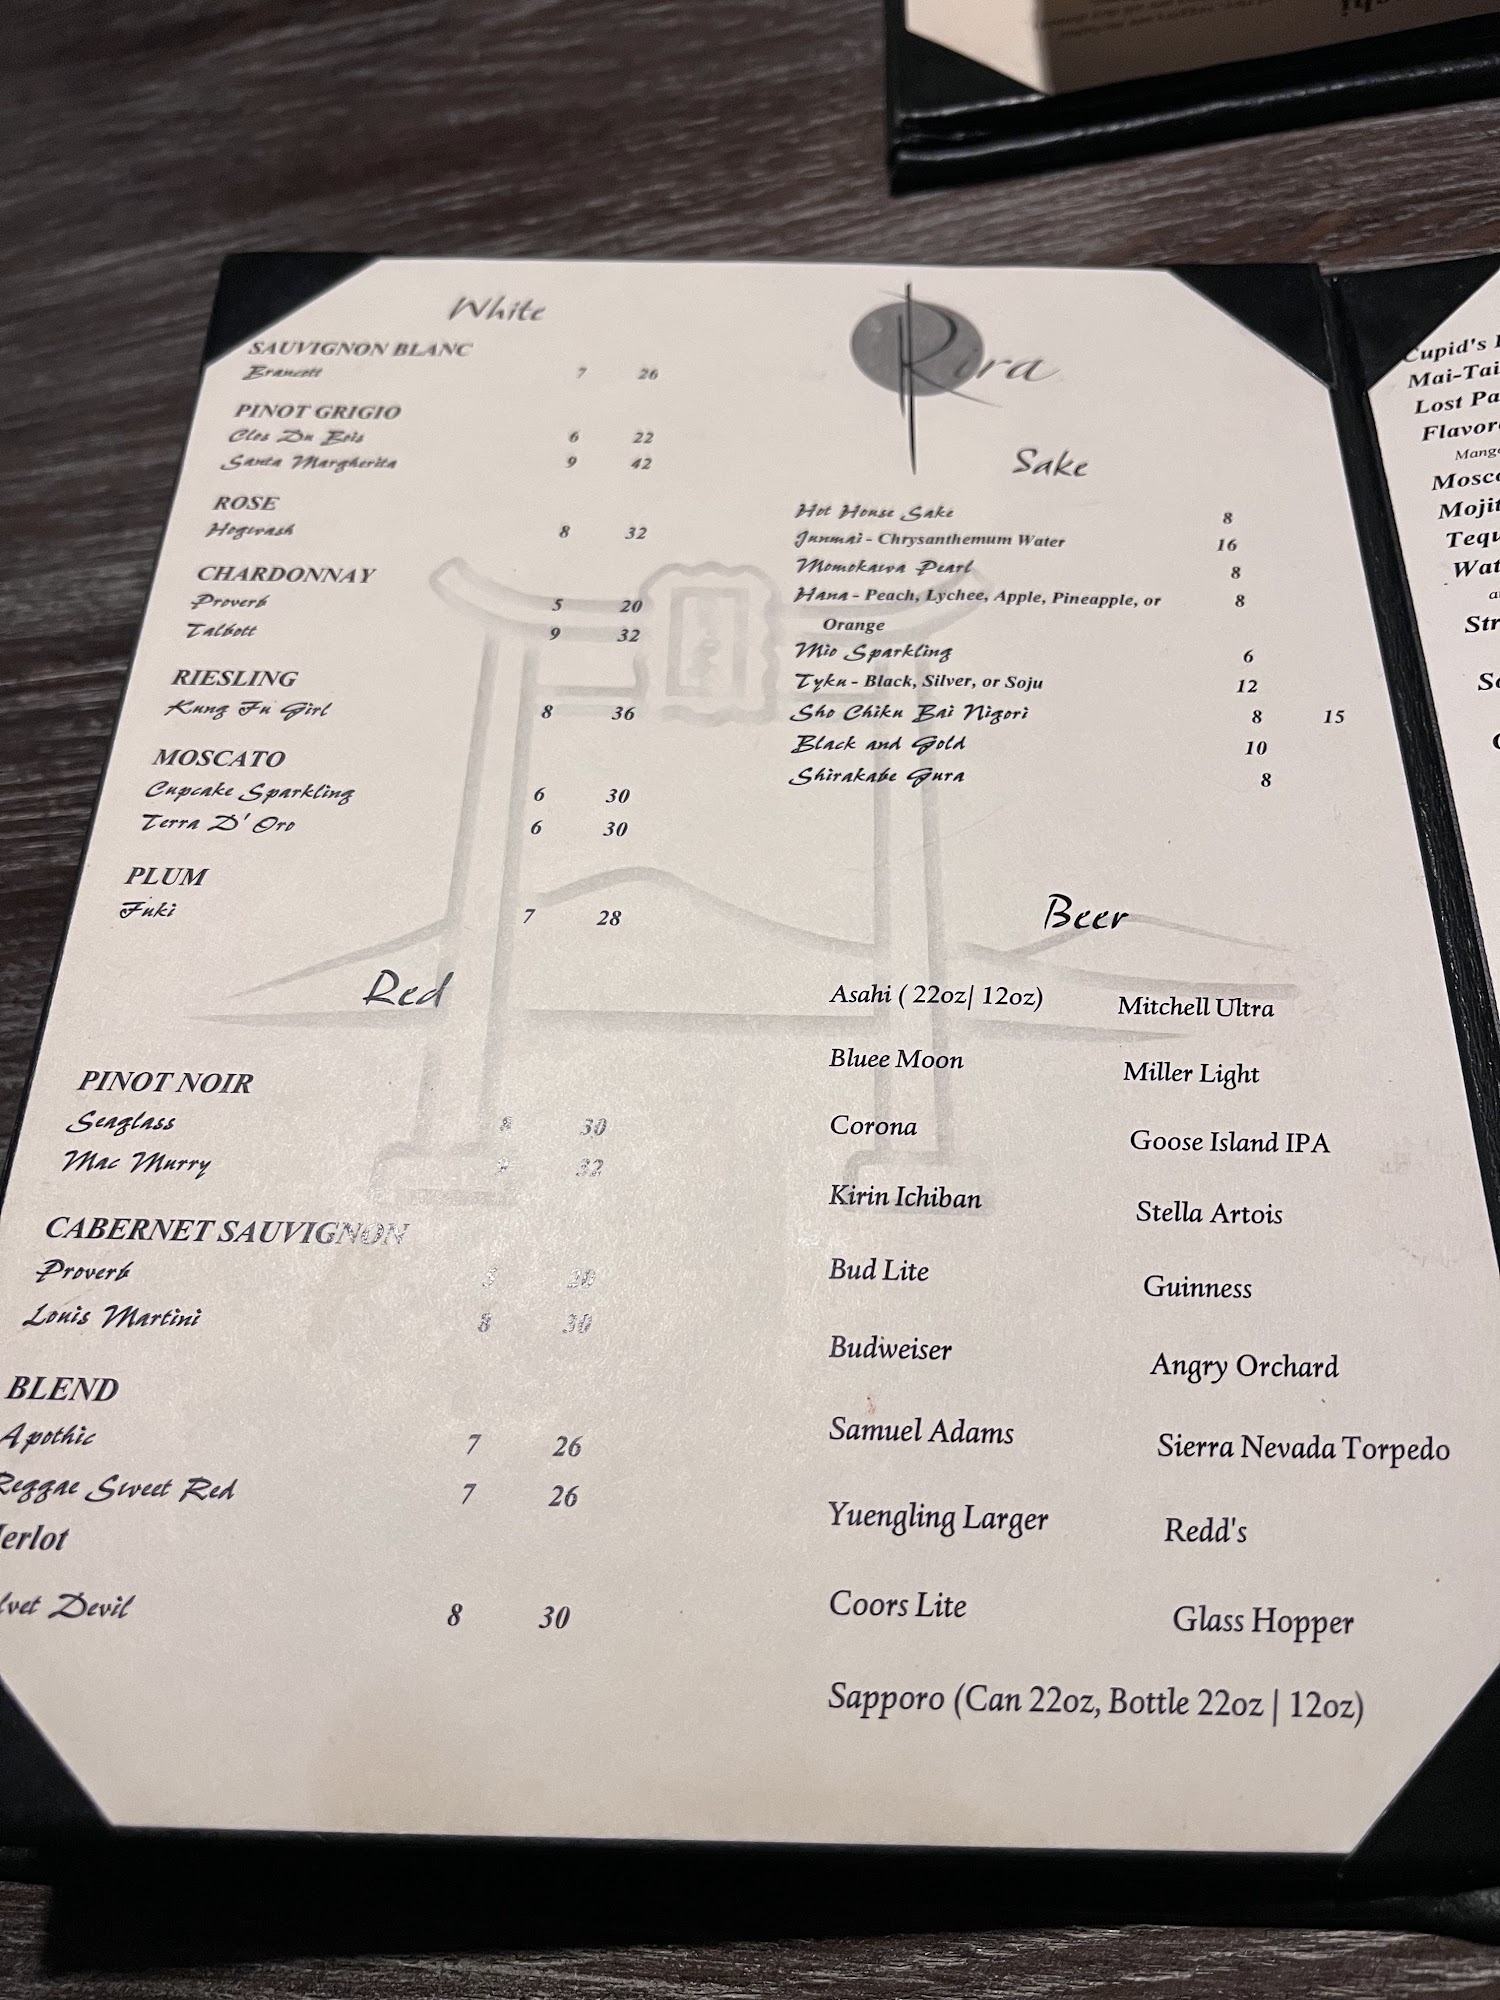 White
SAUVIGNON BLANC
Brancott 7 26
PINOT GRIGIO
Clos Du Bois 6 22
Santa Margherita 9 42
ROSE
Hogwash 8 32
CHARDONNAY
Proverb 5 20
Talbott 9 32
RIESLING
Kung Fu Girl 8 36
MOSCATO
Cupcake Sparkling 6 30
Terra D' Oro 6 30
PLUM
Fuki 7 28
Red
PINOT NOIR
Seaglass 8 30
Mac Murry 32
CABERNET SAUVIGNON
Proverb 5 20
Louis Martini 8 30
BLEND
Apothic 7 26
Reggae Sweet Red 7 26
erlot
lvet Devil 8 30
Kira
Sake
Hot House Sake 8
Junmai - Chrysanthemum Water 16
Momokawa Pearl 8
Hana - Peach, Lychee, Apple, Pineapple, or 8
Orange
Mio Sparkling 6
Tyku - Black, Silver, or Soju 12
Sho Chiku Bai Nigori 8 15
Black and Gold 10
Shirakabe Gura 8
Beer
Asahi ( 22oz| 12oz)
Bluee Moon
Corona
Kirin Ichiban
Bud Lite
Budweiser
Samuel Adams
Yuengling Larger
Coors Lite
Sapporo (Can 22oz, Bottle 22oz | 12oz)
Mitchell Ultra
Miller Light
Goose Island IPA
Stella Artois
Guinness
Angry Orchard
Sierra Nevada Torpedo
Redd's
Glass Hopper
Cupid's
Mai-Tai
Lost Pa
Flavor
Mang
Mosc
Mojit
Tequ
Wat
Str